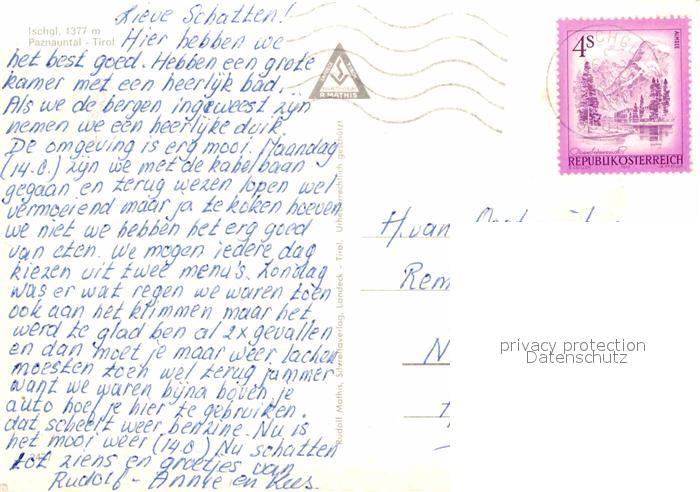 Lieve Schatten!
Ischgl, 1377 m
Paznauntal - Tirol
Hier hebben we
het best goed. Hebben een grote
kamer met een heerlijk bad.
Als we de bergen ingeweest zijn
nemen we een heerlijke duik.
De omgeving is erg mooi. Maandag
(14.0.) zijn we met de kabelbaan
gegaan en terug wezen lopen wel
vermoeiend maar ja te koken hoeven
we niet we hebben het erg goed
van eten. We mogen iedere dag
kiezen uit twee menu's. Zondag
was er wat regen we waren toen
ook aan het klimmen maar het
werd te glad ben al 2x gevallen
en dan moet je maar weer lachen
moesten toen wel terug jammer
want we waren bijna boven je
auto hoef je hier te gebruiken.
dat scheelt weer benzine. Nu is
het mooi weer (14.0) Nu schatten
tot ziens en groetjes van
Rudolf - Annie en Kees.
R. MATHIS
Rudolf Mathis, Landeck - Tirol. Urheberrechtlich geschützt
4 S
ALMSEE
REPUBLIK ÖSTERREICH
H. van
Rem
N
privacy protection
Datenschutz